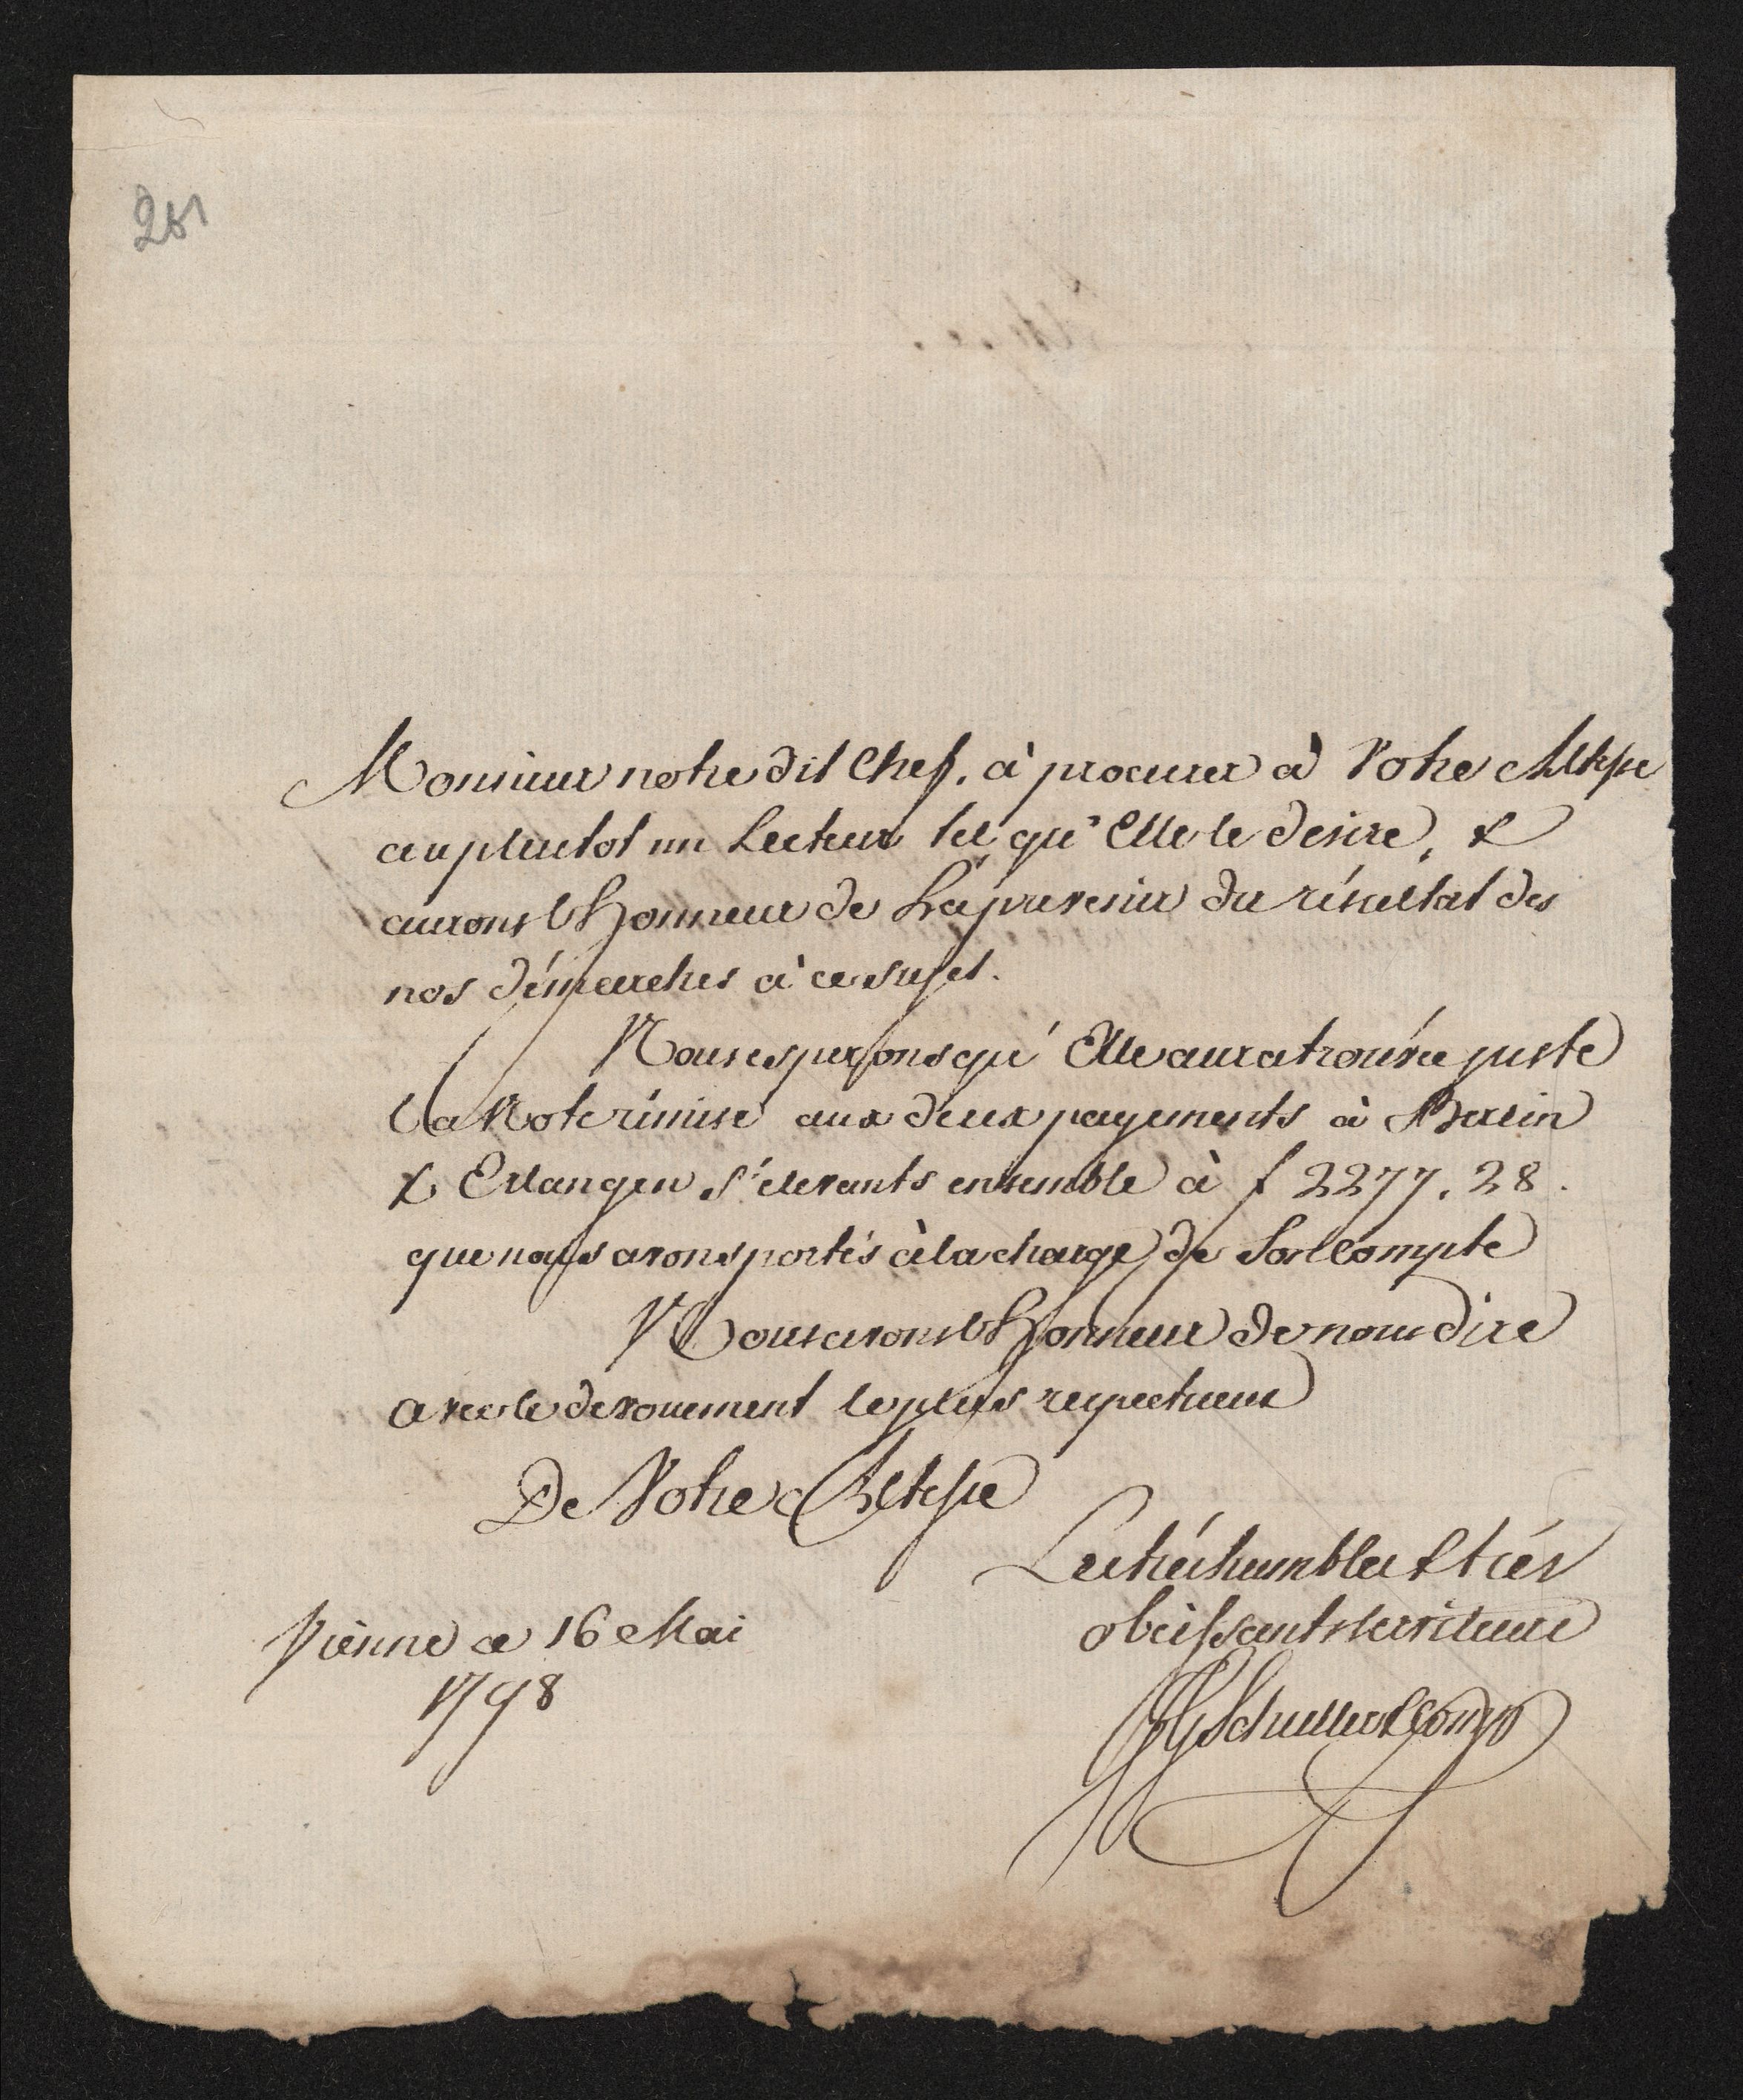 Monsieur notre dit Chef, à procurer à Votre Altesse
au plutot un Lecteur tel qu'Elle le desire, &
aurons l'honneur de La prevenir du résultat des
nos démarches à ce sujet.
Nous esperons qu'Elle aura trouvée juste
la Note rémise aux deux payements à Berlin
& Erlangen s'élevants ensemble à f 2277. 28.
que nous avons portés à la charge de Son Compte
Nous avons l'honneur de nous dire
avec le devouement le plus respectueux
De Votre Altesse
Les trés humbles & trés
obeissants serviteurs
Vienne ce 16 Mai
1798
Schuller & Comp